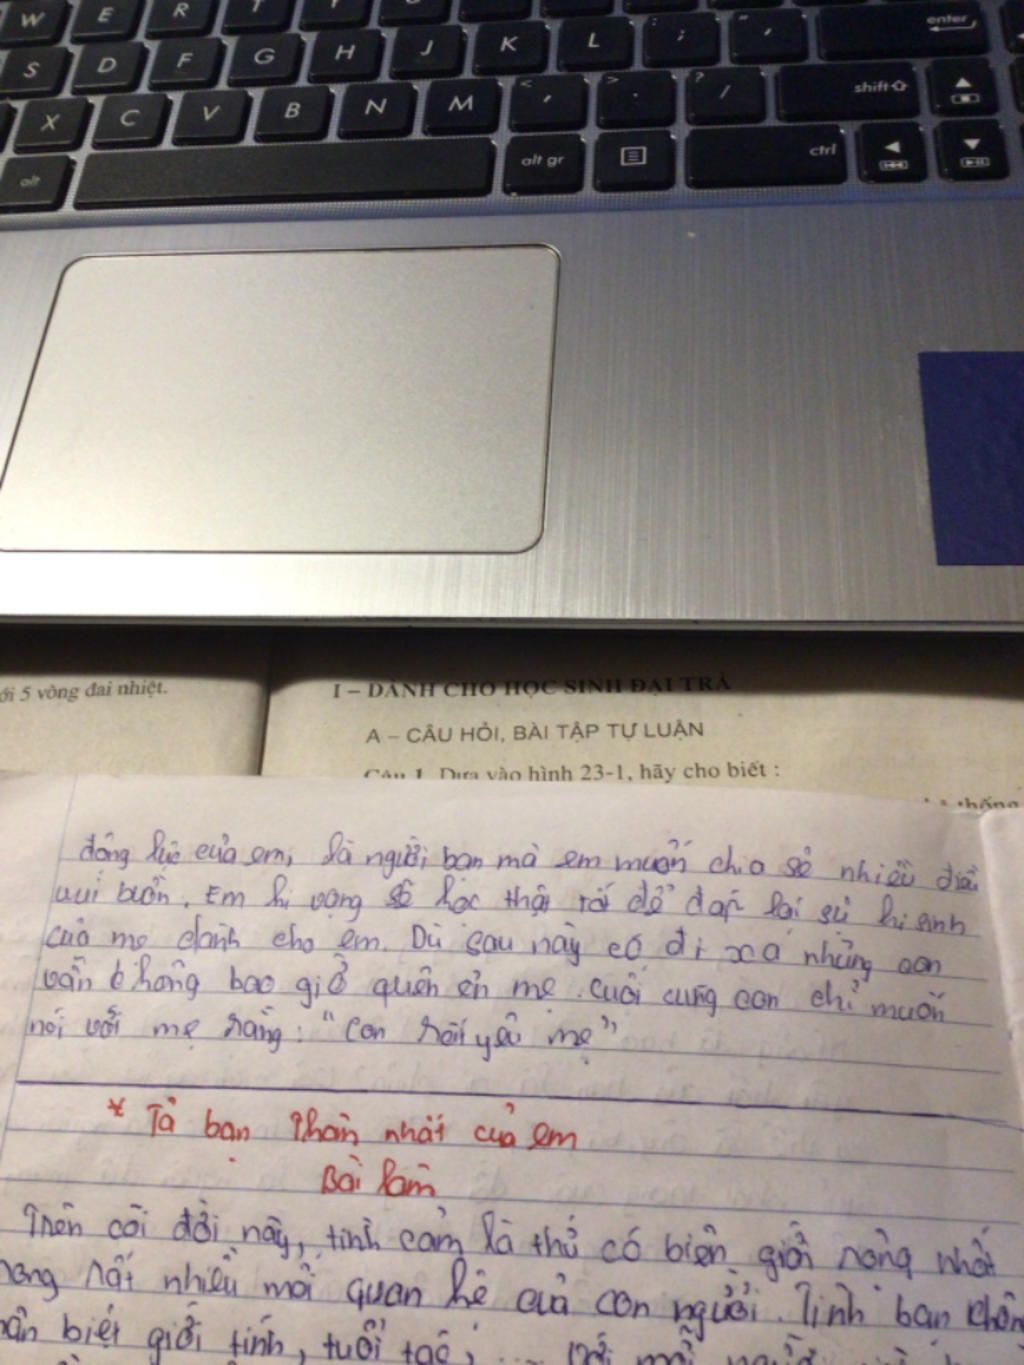 W E R T
S D F G H J K L ; ' enter
X C V B N M < , > . ? / shift
alt alt gr ctrl
ới 5 vòng đai nhiệt.
I – DÀNH CHO HỌC SINH ĐẠI TRÀ
A – CÂU HỎI, BÀI TẬP TỰ LUẬN
Câu 1. Dựa vào hình 23-1, hãy cho biết :
thống
động lực của em, là người bạn mà em muốn chia sẻ nhiều điều
vui buồn. Em hi vọng sẽ học thật tốt để đáp lại sự hi sinh
của mẹ dành cho em. Dù sau này có đi xa nhưng con
vẫn không bao giờ quên ơn mẹ. Cuối cùng con chỉ muốn
nói với mẹ rằng: "Con rất yêu mẹ"
* Tả bạn thân nhất của em
Bài làm
Trên cõi đời này, tình cảm là thứ có biên giới rộng nhất
rong rất nhiều mối quan hệ của con người. Tình bạn khôn
hân biệt giới tính, tuổi tác, ...